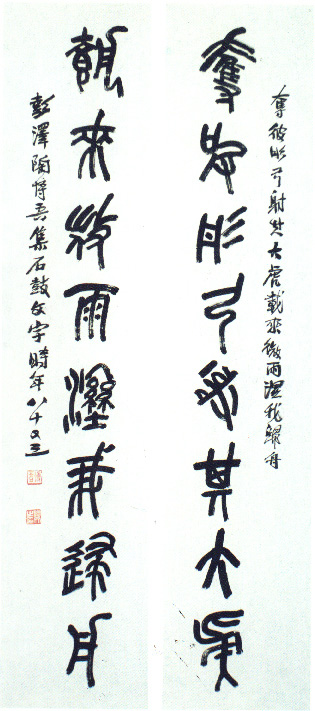 奪彼彤弓射其大虎載來微雨溼我歸舟
奪彼彤弓射其大虎
載來微雨溼我歸舟
彭澤陶博吾集石鼓文字時年八十又三